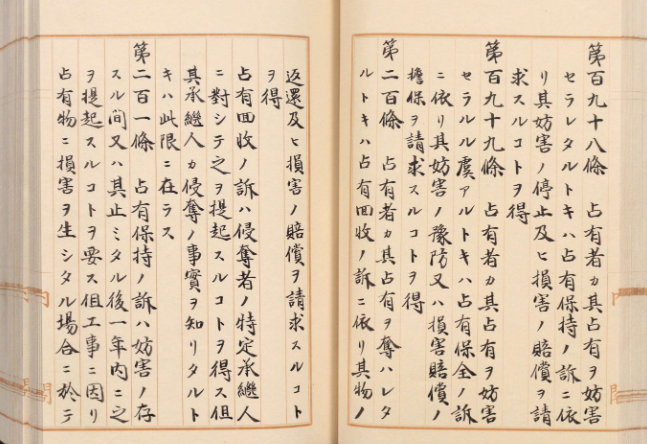 第百九十八條　占有者カ其占有ヲ妨害
セラレタルトキハ占有保持ノ訴ニ依
リ其妨害ノ停止及ヒ損害ノ賠償ヲ請
求スルコトヲ得
第百九十九條　占有者カ其占有ヲ妨害
セラルル虞アルトキハ占有保全ノ訴
ニ依リ其妨害ノ豫防又ハ損害賠償ノ
擔保ヲ請求スルコトヲ得
第二百條　占有者カ其占有ヲ奪ハレタ
ルトキハ占有回收ノ訴ニ依リ其物ノ
返還及ヒ損害ノ賠償ヲ請求スルコト
ヲ得
占有回收ノ訴ハ侵奪者ノ特定承繼人
ニ對シテ之ヲ提起スルコトヲ得ス但
其承繼人カ侵奪ノ事實ヲ知リタルト
キハ此限ニ在ラス
第二百一條　占有保持ノ訴ハ妨害ノ存
スル間又ハ其止ミタル後一年内ニ之
ヲ提起スルコトヲ要ス但工事ニ因リ
占有物ニ損害ヲ生シタル場合ニ於テ